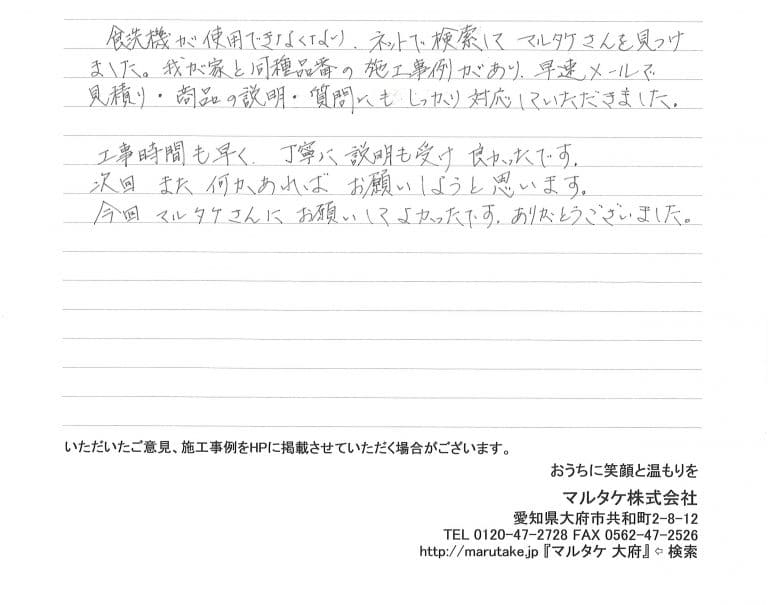 食洗機が使用できなくなり、ネットで検索して マルタケさんを見つけ
ました。我が家と同種品番の施工事例があり、早速メールで
見積り・商品の説明・質問にも しっかり対応していただきました。
工事時間も早く、丁寧に説明も受け 良かったです。
次回 また 何かあれば お願いしようと思います。
今回 マルタケさんに お願いしてよかったです。ありがとうございました。
いただいたご意見、施工事例をHPに掲載させていただく場合がございます。
おうちに笑顔と温もりを
マルタケ株式会社
愛知県大府市共和町2-8-12
TEL 0120-47-2728 FAX 0562-47-2526
http://marutake.jp『マルタケ 大府』⇦ 検索